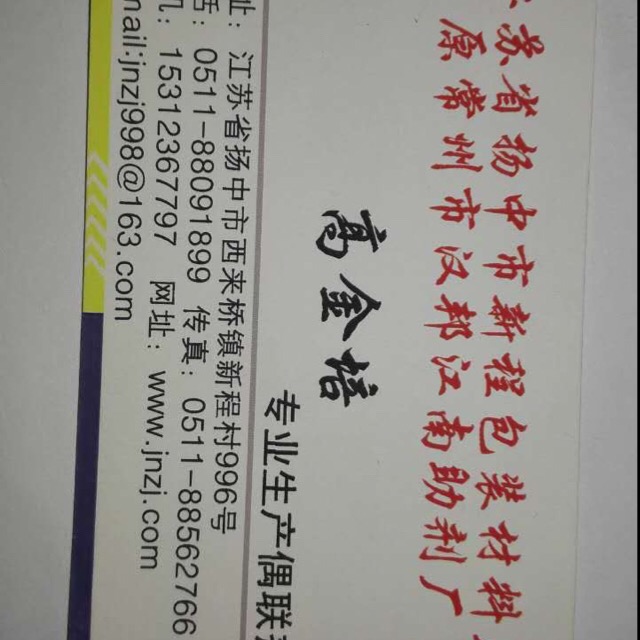 苏省扬中市新程包装材料
原常州市汉邦江南助剂厂
高金培
专业生产偶联
址：江苏省扬中市西来桥镇新程村996号
话：0511-88091899 传真：0511-88562766
机：15312367797 网址：www.jnzj.com
mail:jnzj998@163.com